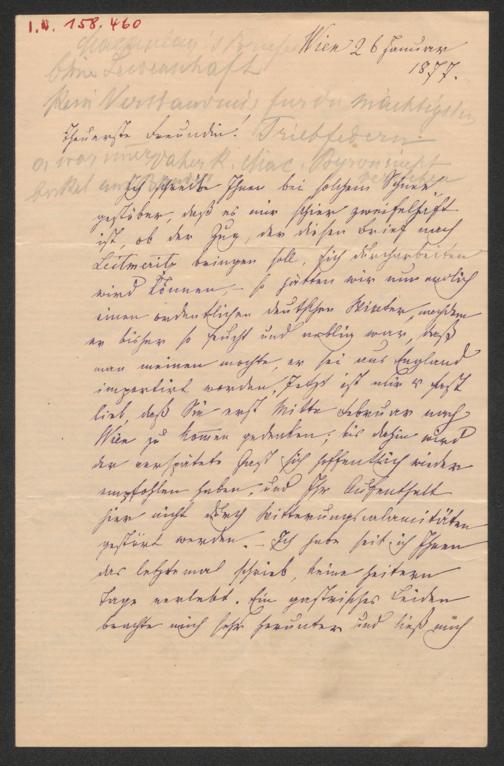 I.N. 158.460
Wien 26 Januar
1877.
Ohne Leidenschaft
Kein Verständnis für die mächtigsten
Theuerste Freundin! Triebfedern
daher k. Mac. Byron nicht
verstehen
Ich schreibe Ihnen bei solchem Schnee
gestöber, daß es mir schier zweifelhaft
ist, ob der Zug, der diesen Brief nach
Leitmeritz bringen soll, sich durcharbeiten
wird können. – So hätten wir nun endlich
einen ordentlichen deutschen Winter, nachdem
er bisher so feucht und neblig war, daß
man meinen mochte, er sei aus England
importirt worden. Jetzt ist mir's fast
lieb, daß Sie erst Mitte Februar nach
Wien zu kommen gedenken; bis dahin wird
der verspätete Gast sich hoffentlich wieder
empfohlen haben, und Ihr Aufenthalt
hier nicht durch Witterungscalamitäten
gestört werden. – Ich habe seit ich Ihnen
das letztemal schrieb, keine heitern
Tage verlebt. Ein gastrisches Leiden
brachte mich sehr herunter und ließ mich